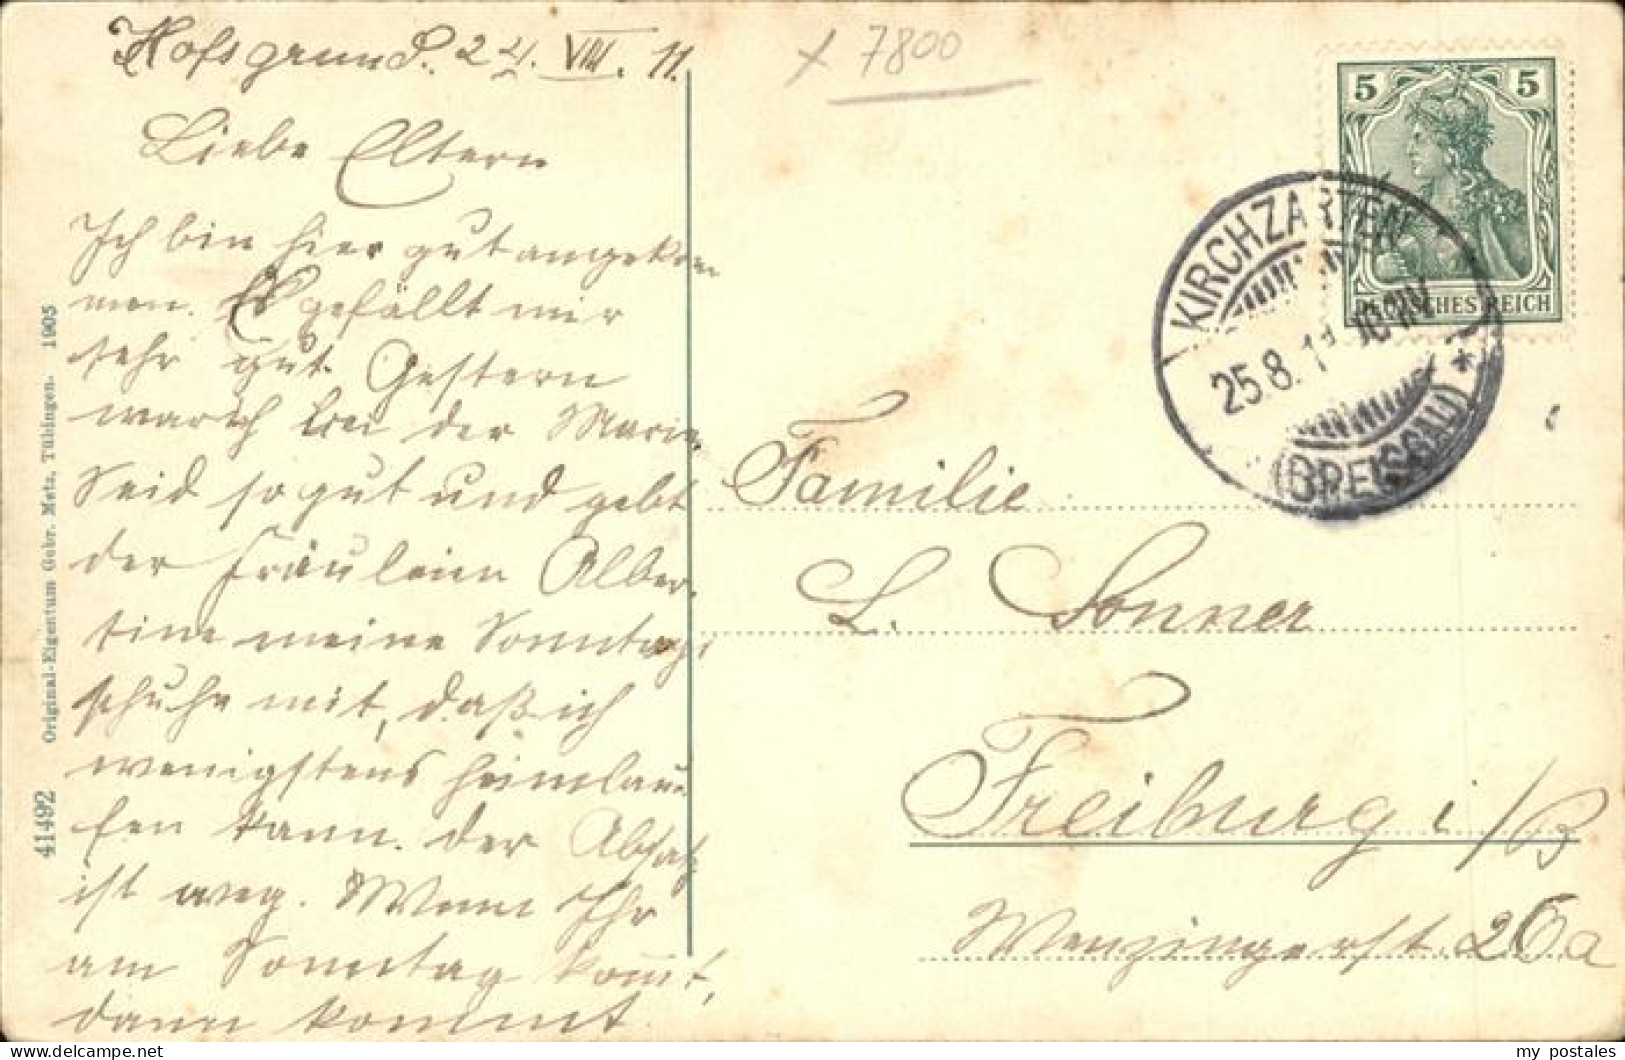 Hofsgrund. 24. VIII. 11.
Liebe Eltern
Ich bin hier gut angekom
men. Es gefällt mir
sehr gut. Gestern
war ich bei der Marie.
Seid so gut und gebt
der Fräulein Alber-
tine meine Sonntags
schuhe mit, daß ich
wenigstens heimlau
fen kann. Der Absatz
ist weg. Wenn Ihr
am Sonntag kommt,
dann kommt
x 7800
5 5
DEUTSCHES REICH
KIRCHZARTEN
25.8.11
(BREISGAU)
*
Familie
L. Sonner
Freiburg i/B
Wenzingerst. 26a
41492 Original-Eigentum Gebr. Metz, Tübingen. 1905
my_postales